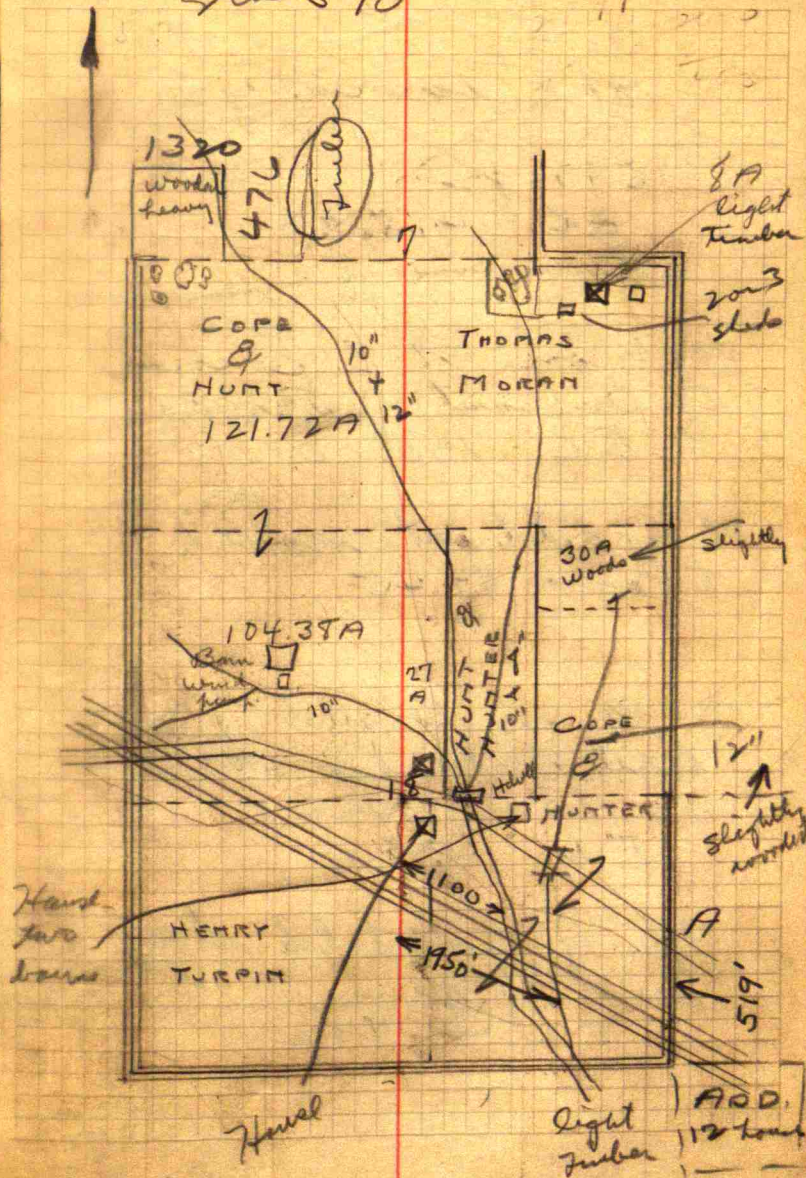 1320
woods
heavy
476
Timber
8A
light
Timber
2 or 3
sheds
COPE
&
HUNT
121.72A
10"
+
12"
THOMAS
MORAN
30A
woods
slightly
104.38A
Barn
wind
pump
10"
27
A
HUNT &
HUNTER
10"
COPE
&
HUNTER
12"
slightly
wooded
18
House
two
barns
HENRY
TURPIN
1100
1950'
A
519'
House
light
Timber
ADD.
112